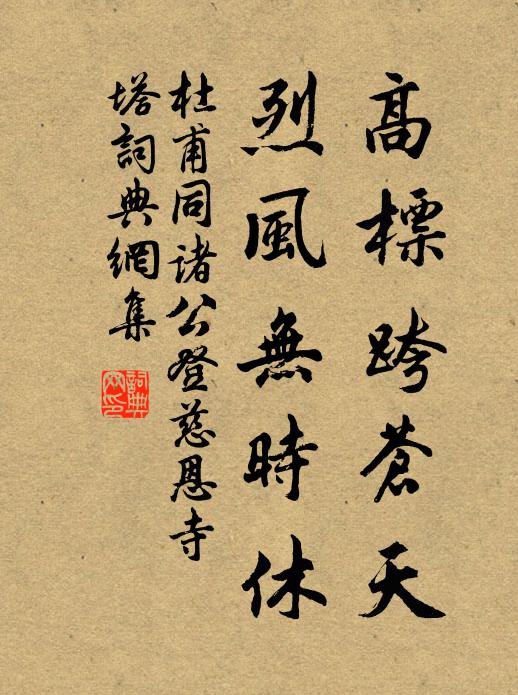 高標跨蒼天
烈風無時休
杜甫同諸公登慈恩寺
塔詞典網集
詞典網印